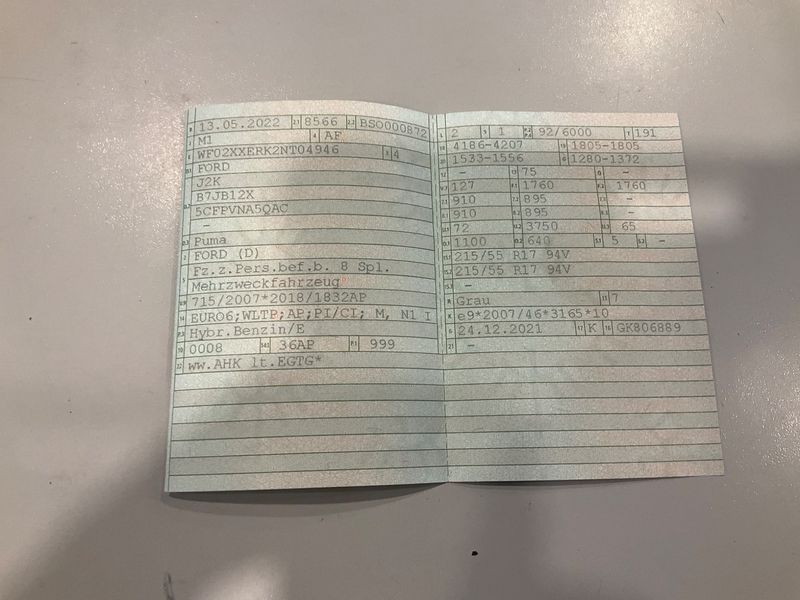 B 13.05.2022 2.1 8566 2.2 BSO000872
J M1 4 AF
E WF02XXERK2NT04946 3 4
D.1 FORD
J2K
B7JB12X
D.2 5CFPVNA5QAC
–
D.3 Puma
2 FORD (D)
5 Fz.z.Pers.bef.b. 8 Spl.
Mehrzweckfahrzeug
V.9 715/2007*2018/1832AP
14 EURO6;WLTP;AP;PI/CI; M, N1 I
P.3 Hybr.Benzin/E
10 0008 14.1 36AP P.1 999
22 ww.AHK lt.EGTG*
L 2 9 1 P.2 P.4 92/6000 T 191
18 4186-4207 19 1805-1805
20 1533-1556 G 1280-1372
12 – 13 75 Q –
V.7 127 F.1 1760 F.2 1760
7.1 910 7.2 895 7.3 –
8.1 910 8.2 895 8.3 –
U.1 72 U.2 3750 U.3 65
O.1 1100 O.2 640 S.1 5 S.2 –
15.1 215/55 R17 94V
15.2 215/55 R17 94V
15.3 –
R Grau 11 7
K e9*2007/46*3165*10
6 24.12.2021 17 K 16 GK806889
21 –